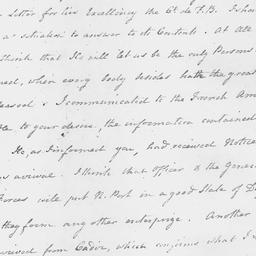 Letter for His Excellency the Ct de F.B. I sho
a satisfaction to answer to its Contents. At all
think that He will let us be the only Persons
ned, when every body besides hath the grea
leased & I communicated to the French Am
to your desire, the information contained
He, as I informed you, had received Notice
arrival. I think that Officer & the General
Forces will put N. Port in a good State of D
they form any other enterprize. Another
arrived from Cadix, which confirms what I